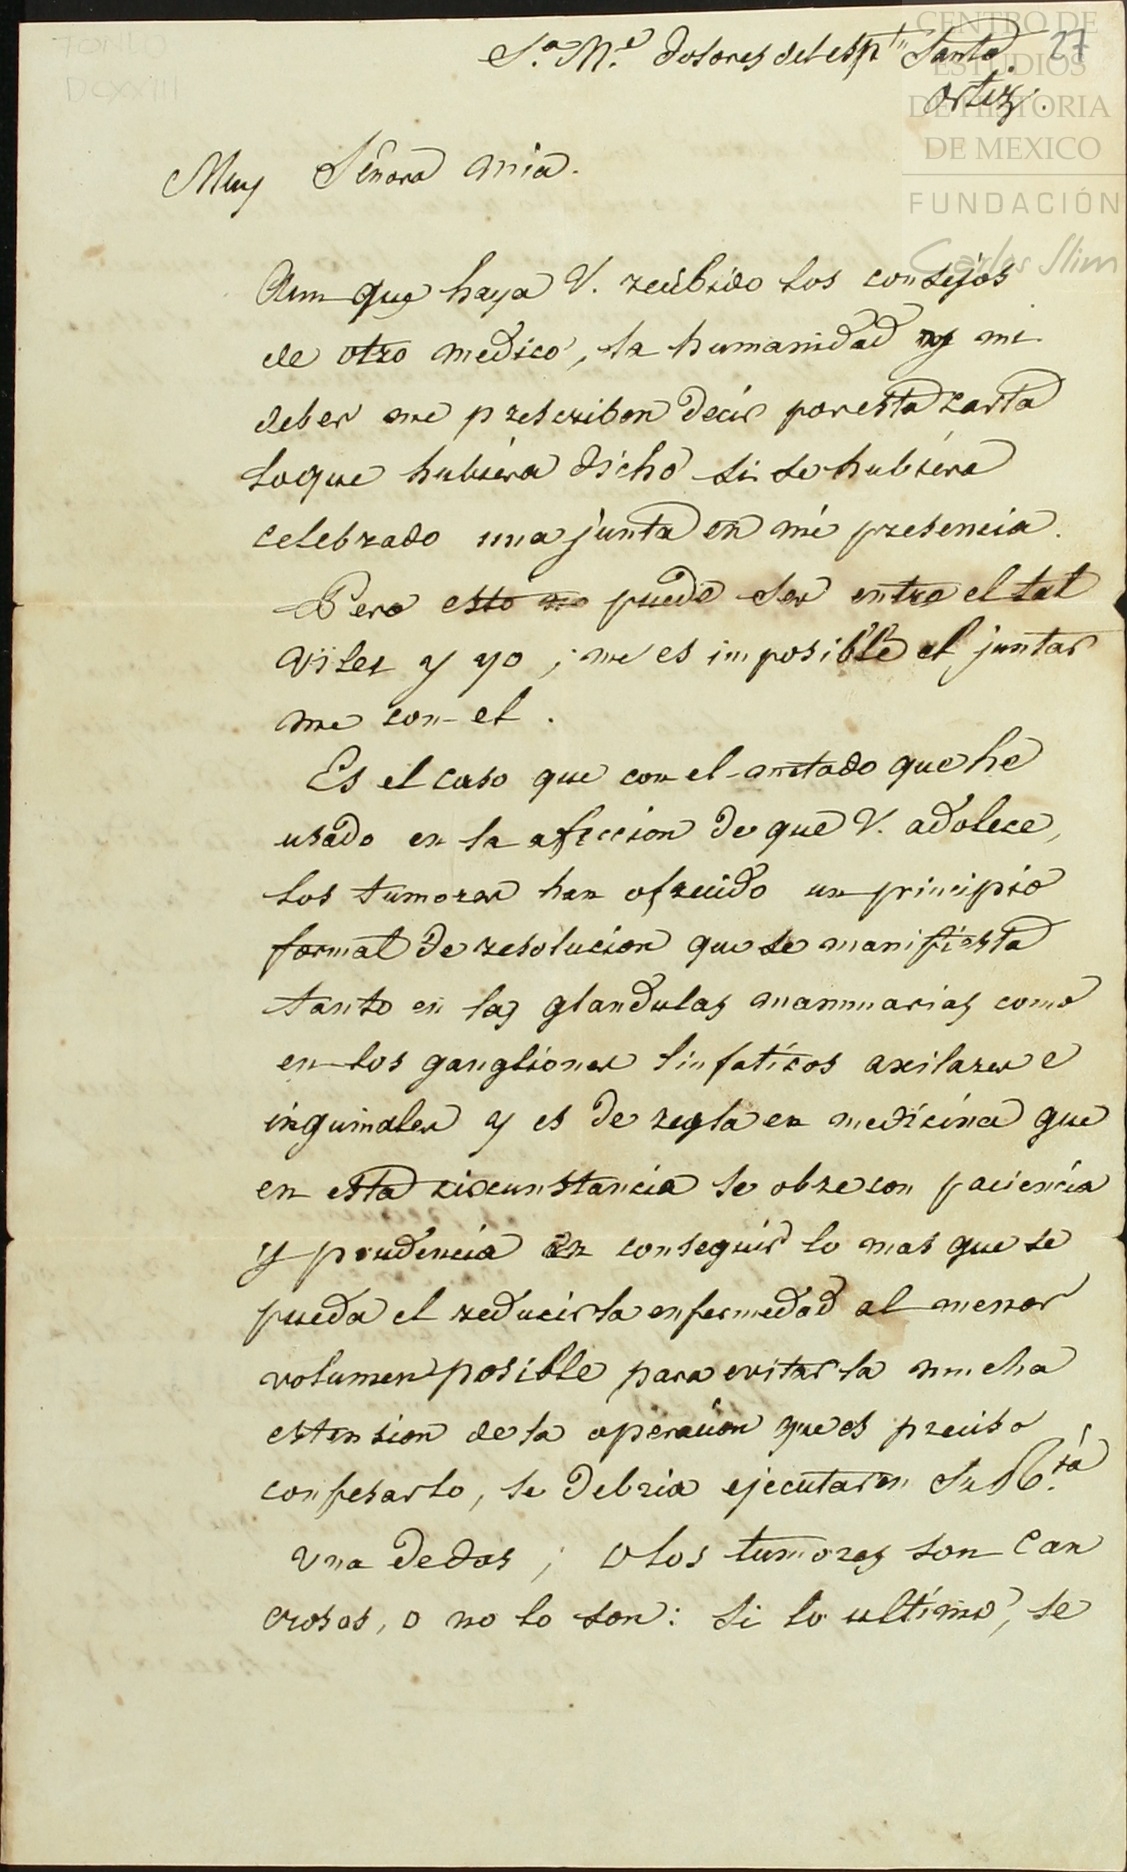 FONDO
DCXXIII
CENTRO DE
ESTUDIOS
DE HISTORIA
DE MEXICO
FUNDACIÓN
Carlos Slim
27
S.ª M.ª Dolores del espⁿ Santo
Ortiz.
Muy Señora mia.
Aun que haya V. recibido los consejos
de otro medico, la humanidad y mi
deber me prescriben decir por esta carta
loque hubiera dicho si se hubiera
celebrado una junta en mi presencia.
Pero esto no puede ser entre el tal
Viler y yo; me es imposible el juntar
me con el.
Es el caso que con el metado que he
usado en la afeccion de que V. adolece,
los tumores han ofrecido un principio
formal de resolucion que se manifiesta
tanto en las glandulas mammarias como
en los gangliones linfaticos axilares e
inguinales y es de regla en medicina que
en esta circunstancia se obre con paciencia
y prudencia en conseguir lo mas que se
pueda el reducir la enfermedad al menor
volumen posible para evitar la mucha
estension de la operacion que es preciso
confesarlo, se debria ejecutar en Su R.ᶜⁱᵃ
Una de dos; o los tumores son can
crosos, o no lo son: si lo ultimo, se